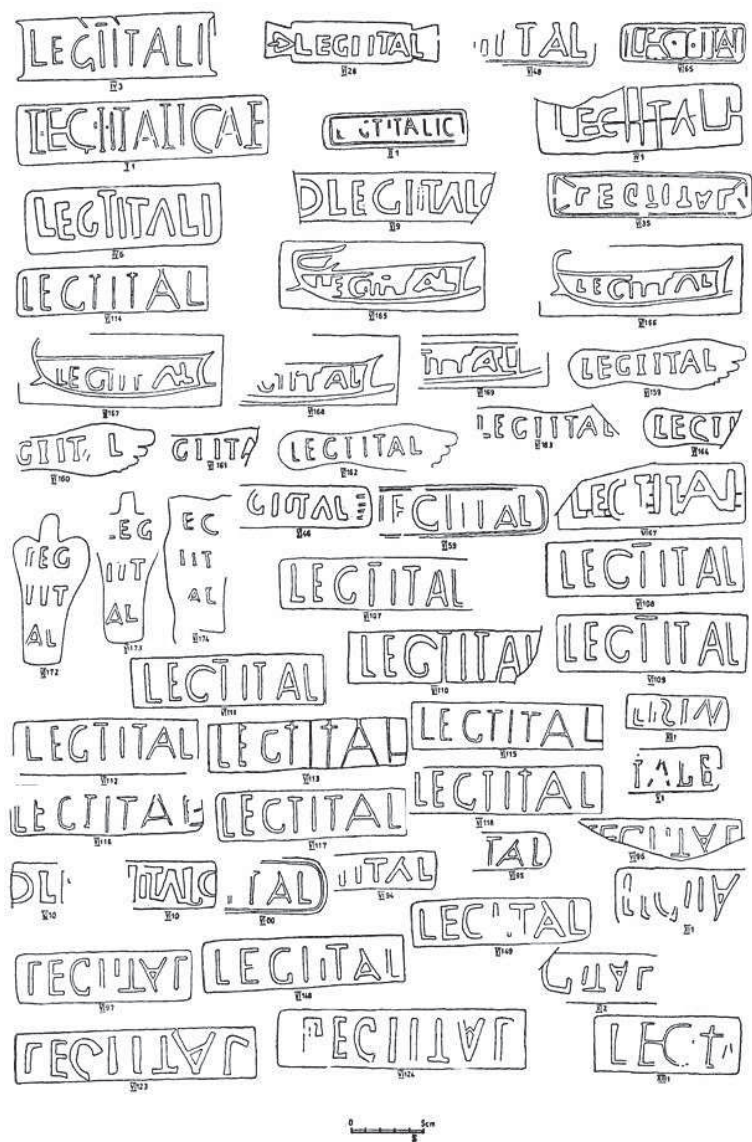 LEGIITALI
IV3
LEGIITAL
VI28
ITAL
VI48
VI65
LEGIITALICAE
X1
LEGTITALIC
XI1
LEGIITAL
IV5
LEGIITALI
IV6
DLEGIITAL
VI9
LEGIITAL
VI35
LEGIITAL
VI114
LEGIITAL
VI165
LEGIITAL
VI166
LEGIITAL
VI167
GIITAL
VI168
AL
VI169
LEGIITAL
VI159
GIIT L
VI160
GIITA
VI161
LEGIITAL
VI162
LEGIITAL
VI163
LEGII
VI164
LEG
IIT
AL
VI172
EG
IIT
AL
VI173
EC
IIT
AL
VI174
GIITAL
VI46
EGIIIAL
VI59
LECTITAL
VI67
LEGIITAL
VI107
LEGIITAL
VI108
LEGIITAL
VI109
LEGIITAL
VI110
LEGIITAL
VI111
LECTITAL
VI112
LECTITAL
VI113
LECTITAL
VI115
LEGIITAL
VI116
LECTITAL
VI117
LEGIITAL
VI118
TAL
VI95
LEGIITAL
VI96
DLI
VI10
VI10
ITAL
VI80
IITAL
VI94
LEGIITAL
VI97
LEGIITAL
VI148
LECITAL
VI149
GITAL
X2
LEGIITAL
VI123
LEGIITAL
VI124
LECT
XII1
0 5cm